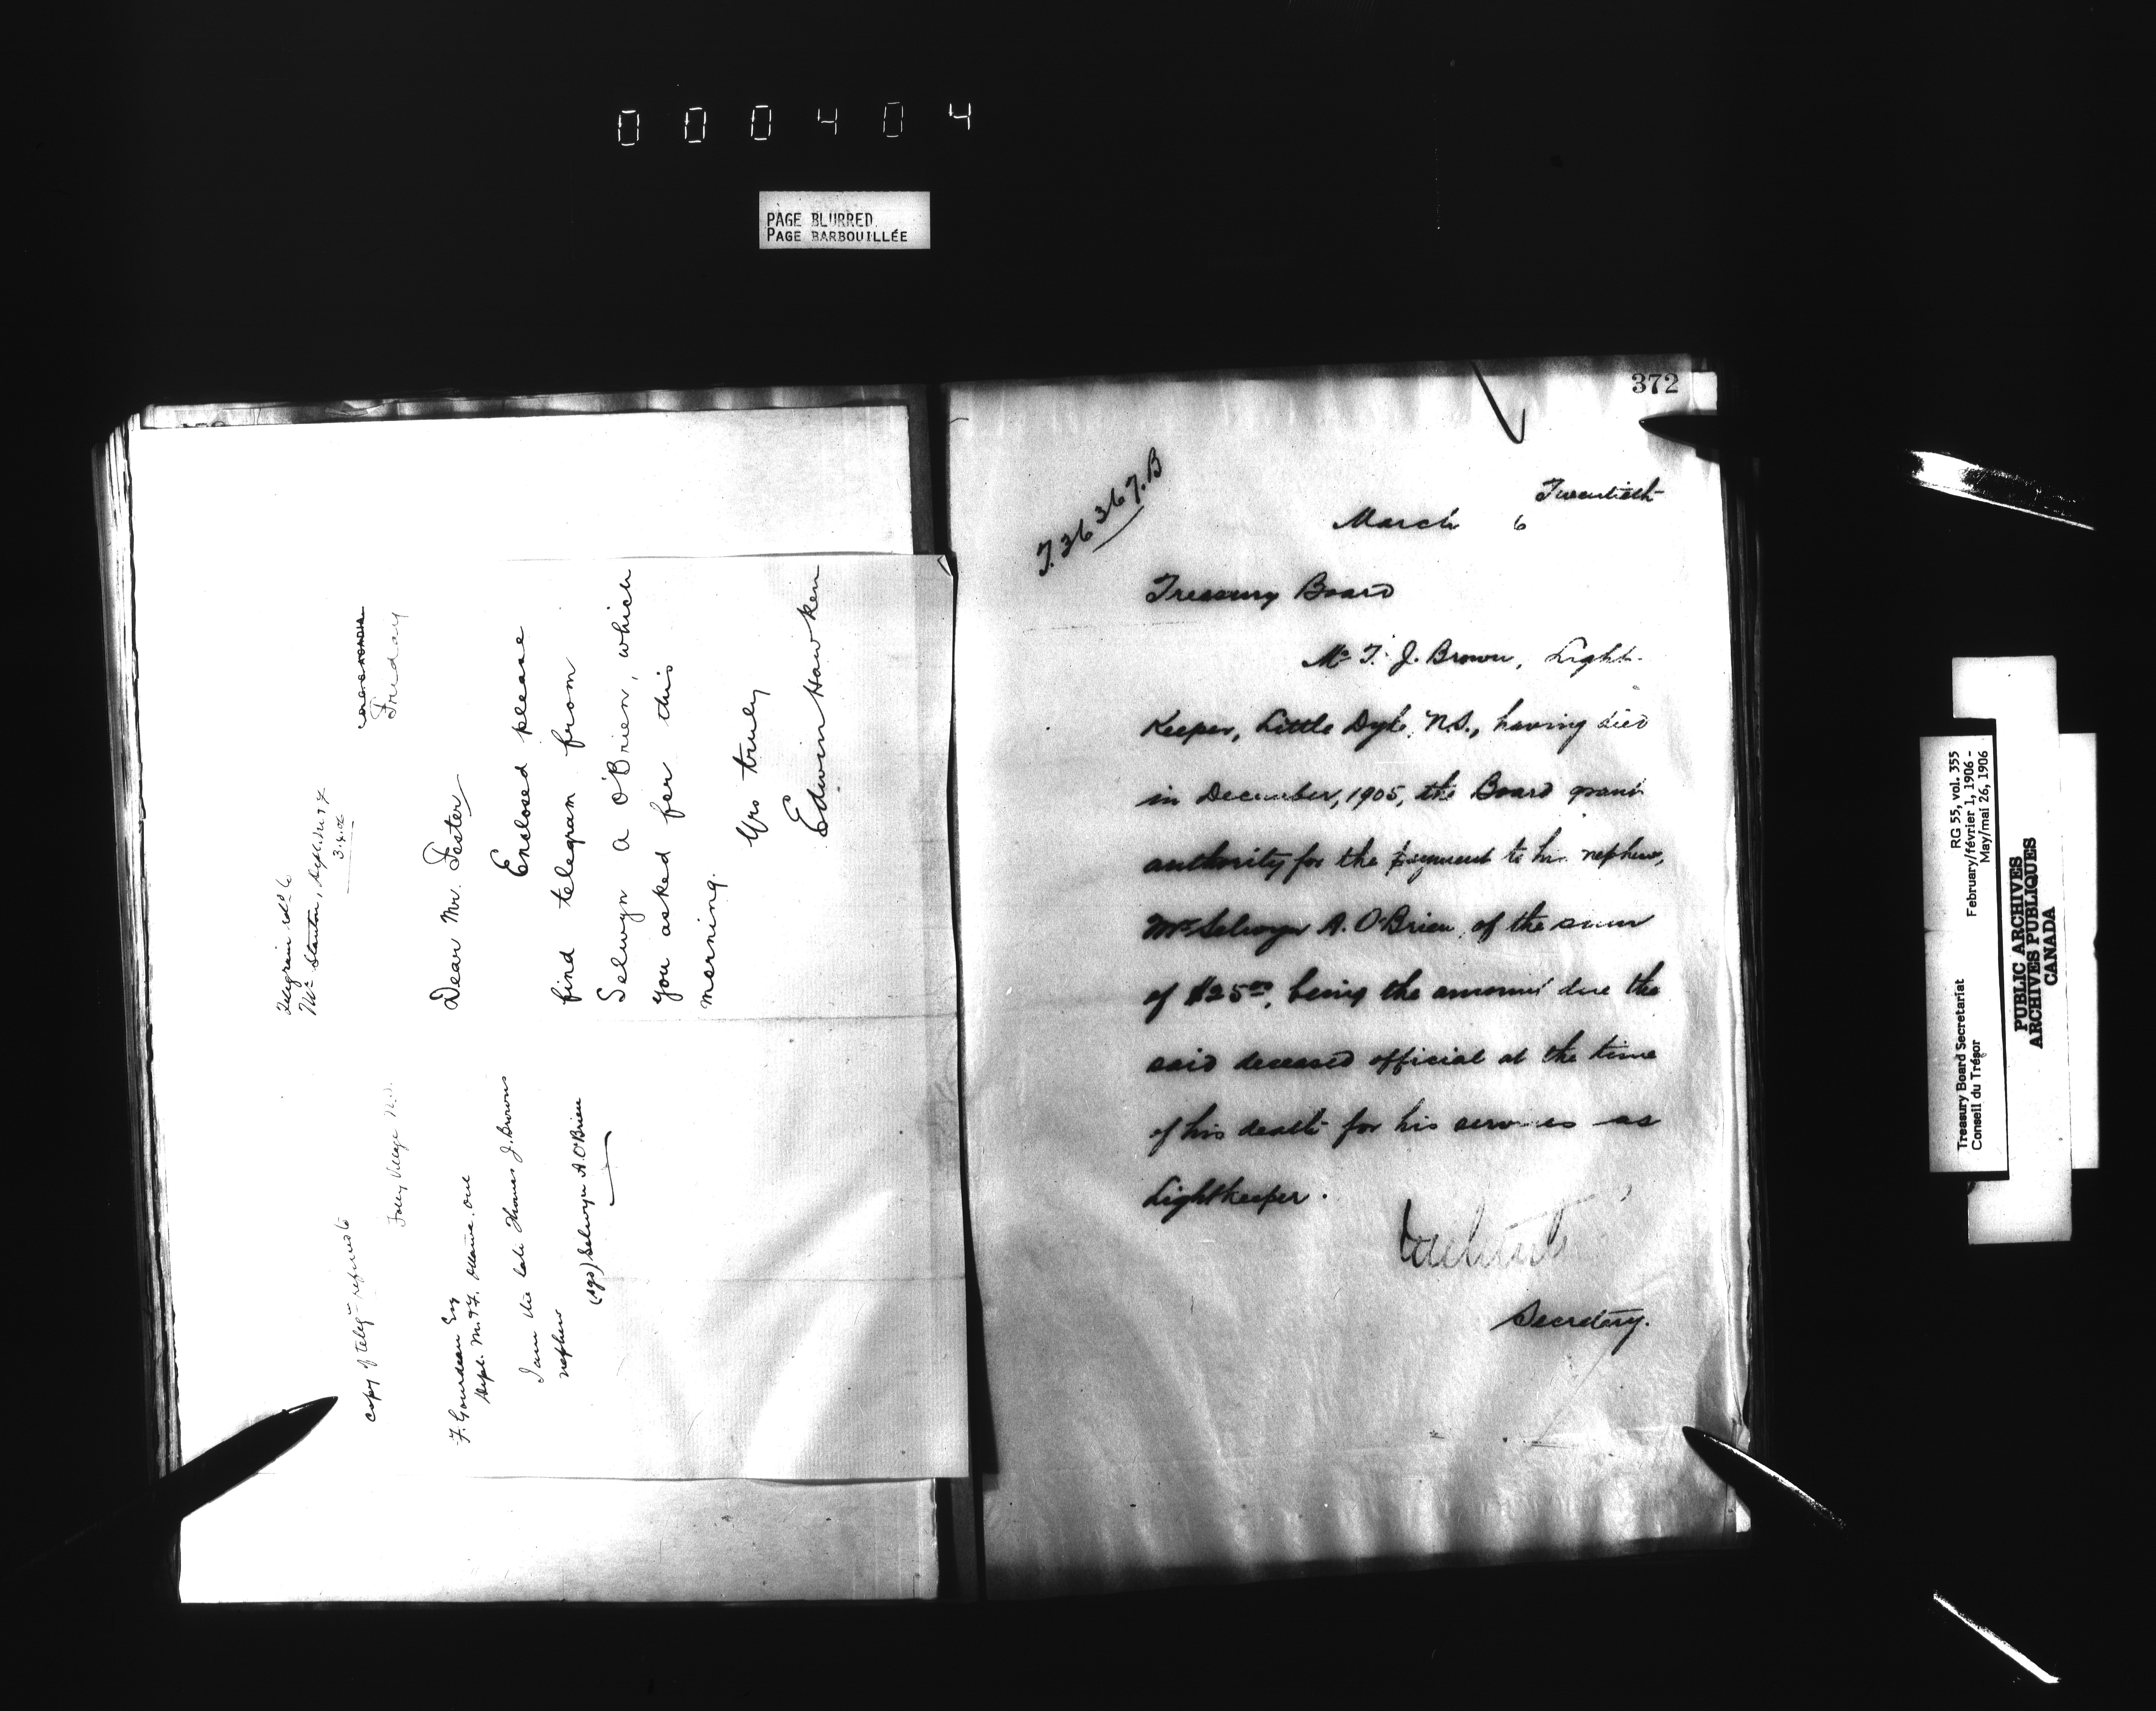 000404
PAGE BLURRED
PAGE BARBOUILLÉE
Telegram ret'd to
Mr Stanton, Dept. M & F
3.4.06
Friday
Dear Mr. Foster
Enclosed please
find telegram from
Selwyn A O'Brien, which
you asked for this
morning.
Yrs truly
Edwin Hawken
copy of teleg— returned to
Folly Village N.S.
F. Gourdeau Esq
Dept. M. & F. Ottawa. Ont
I am the late Thomas J. Browns
nephew
(sgd) Selwyn A. O'Brien
372
T. 36 367. B
Twentieth
March 6
Treasury Board
Mr T. J. Brown, Light-
Keeper, Little Dyke, N.S., having died
in December, 1905, the Board grant
authority for the payment to his nephew,
Mr Selwyn A. O'Brien, of the sum
of $25 00, being the amount due the
said deceased official at the time
of his death for his services as
Lightkeeper.
Secretary.
RG 55, vol. 355
February/février 1, 1906 -
May/mai 26, 1906
Treasury Board Secretariat
Conseil du Trésor
PUBLIC ARCHIVES
ARCHIVES PUBLIQUES
CANADA